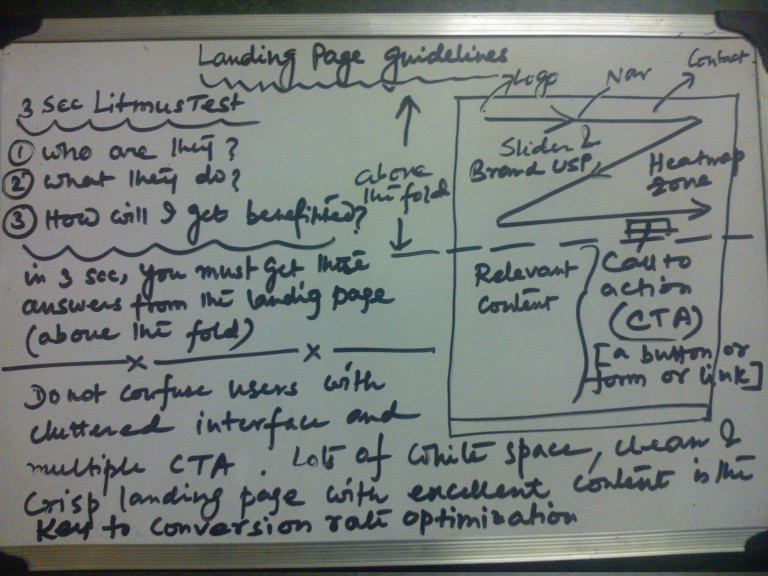 Landing Page guidelines
3 sec Litmus Test
① who are they?
② what they do?
③ How will I get benefitted?
in 3 sec, you must get these
answers from the landig page
(above the fold)
above
the fold
Logo
Nav
Contact
Slider &
Brand USP
Heatmap
zone
Relevant
Content
Call to
action
(CTA)
[a button or
form or link]
Do not confuse users with
cluttered interface and
multiple CTA. Lots of white space, clean &
Crisp landing page with excellent content is the
Key to conversion rate optimization